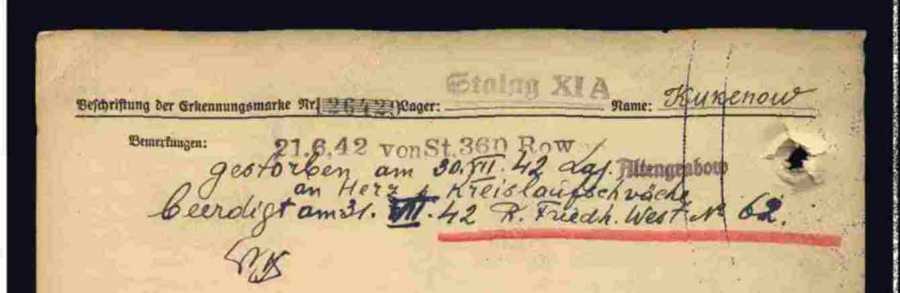 Beschriftung der Erkennungsmarke Nr. 12642 Lager: Stalag XI A Name: Kukenow
Bemerkungen: 21.6.42 von St. 360 Row
gestorben am 30.VII.42 Laz. Altengrabow
an Herz- Kreislaufschwäche
beerdigt am 31. VII. 42 R. Friedh. West. № 62.